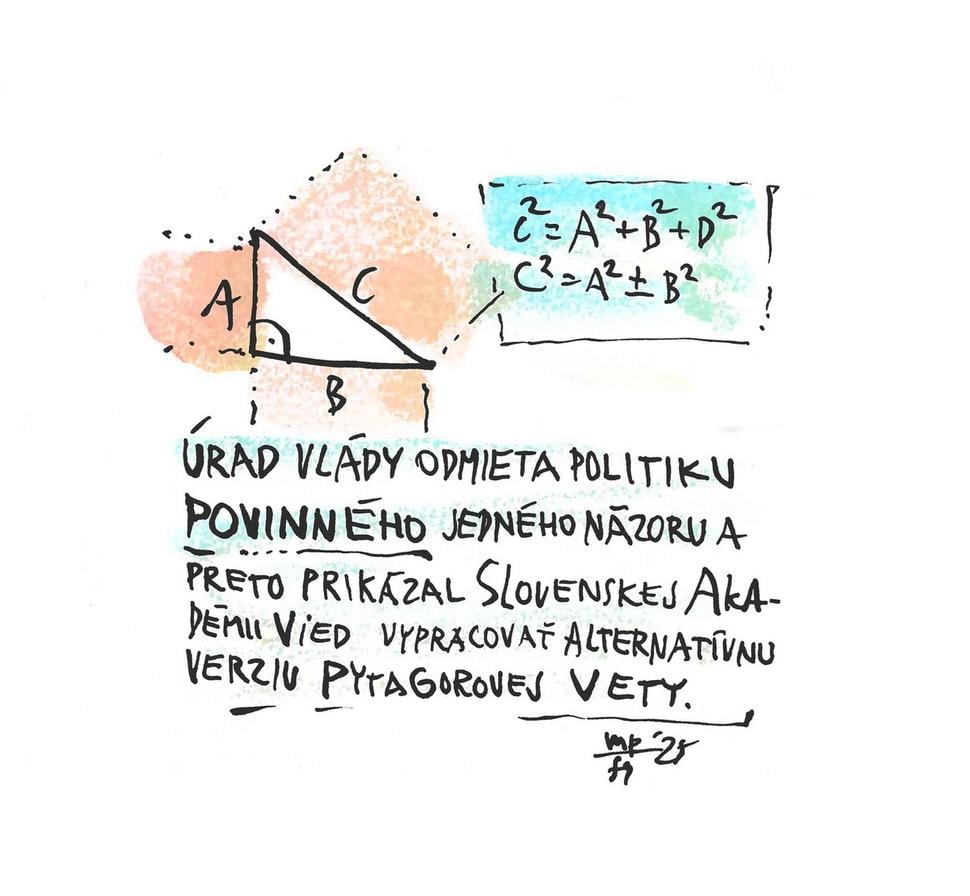 A
C
B
C² = A² + B² + D²
C² = A² ± B²
ÚRAD VLÁDY ODMIETA POLITIKU
POVINNÉHO JEDNÉHO NÁZORU A
PRETO PRIKÁZAL SLOVENSKEJ AKA-
DÉMII VIED VYPRACOVAŤ ALTERNATÍVNU
VERZIU PYTAGOROVEJ VETY.